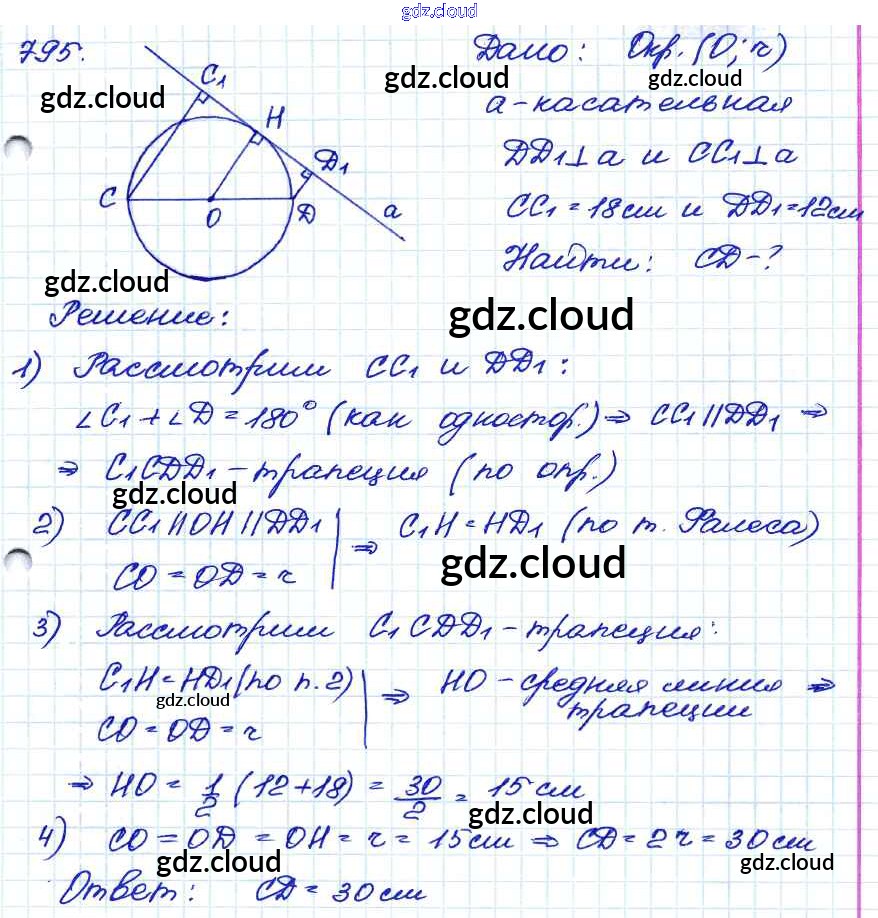 gdz.cloud
795.
Дано: Окр. (O; r)
gdz.cloud
gdz.cloud
a - касательная
DD₁⊥a и CC₁⊥a
CC₁ = 18см и DD₁ = 12см
Найти: CD - ?
C₁
H
D₁
C
O
D
a
gdz.cloud
Решение:
gdz.cloud
1) Рассмотрим CC₁ и DD₁:
∠C₁ + ∠D = 180° (как одностор.) ⇒ CC₁ || DD₁ ⇒
⇒ C₁CDD₁ - трапеция (по опр.)
gdz.cloud
2) CC₁ || OH || DD₁ ⇒ C₁H = HD₁ (по т. Фалеса)
CO = OD = r
gdz.cloud
3) Рассмотрим C₁CDD₁ - трапеция:
C₁H = HD₁ (по п. 2) ⇒ HO - средняя линия ⇒
трапеции
gdz.cloud
CO = OD = r
⇒ HO = 1/2 (12 + 18) = 30/2 = 15 см
gdz.cloud
4) CO = OD = OH = r = 15см ⇒ CD = 2r = 30 см
gdz.cloud
gdz.cloud
Ответ: CD = 30 см